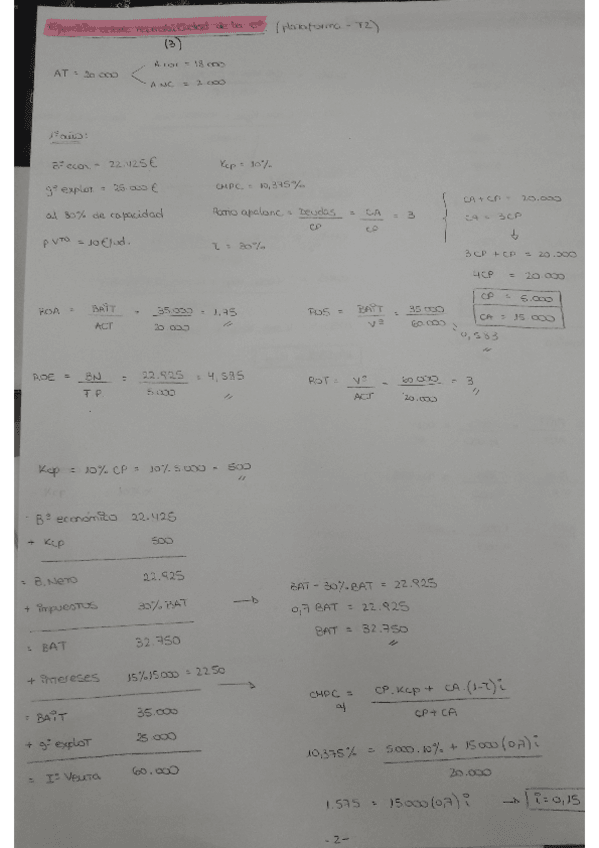 Ejercicio sobre rentabilidad de la eª (plataforma - T2)
(3)
AT = 20.000
A cor = 18.000
A NC = 2.000
1º año:
Bº econ = 22.425€
gº explot = 25.000€
al 80% de capacidad
p. vta = 10€/ud.
Kcp = 10%
CMPC = 10,375%
Ratio apalanc = Deudas/CP = CA/CP = 3
τ = 30%
CA + CP = 20.000
CA = 3CP
↓
3CP + CP = 20.000
4CP = 20.000
CP = 5.000
CA = 15.000
ROA = BAIT/ACT = 35.000/20.000 = 1,75
ROS = BAIT/Vª = 35.000/60.000 = 0,583
ROE = BN/T.P. = 22.925/5.000 = 4,585
ROT = Vª/ACT = 60.000/20.000 = 3
Kcp = 10% CP = 10% 5000 = 500
Bº económico 22.425
+ Kcp 500
= B. Neto 22.925
+ impuestos 30% BAT
= BAT 32.750
+ intereses 15% 15000 = 2250
= BAIT 35.000
+ gº explot 25.000
= Iº Venta 60.000
BAT - 30% BAT = 22.925
0,7 BAT = 22.925
BAT = 32.750
CMPC = CP·Kcp + CA·(1-τ)i
CP + CA
10,375% = 5000·10% + 15000(0,7)i
20.000
1.575 = 15000(0,7)i → i = 0,15
-2-